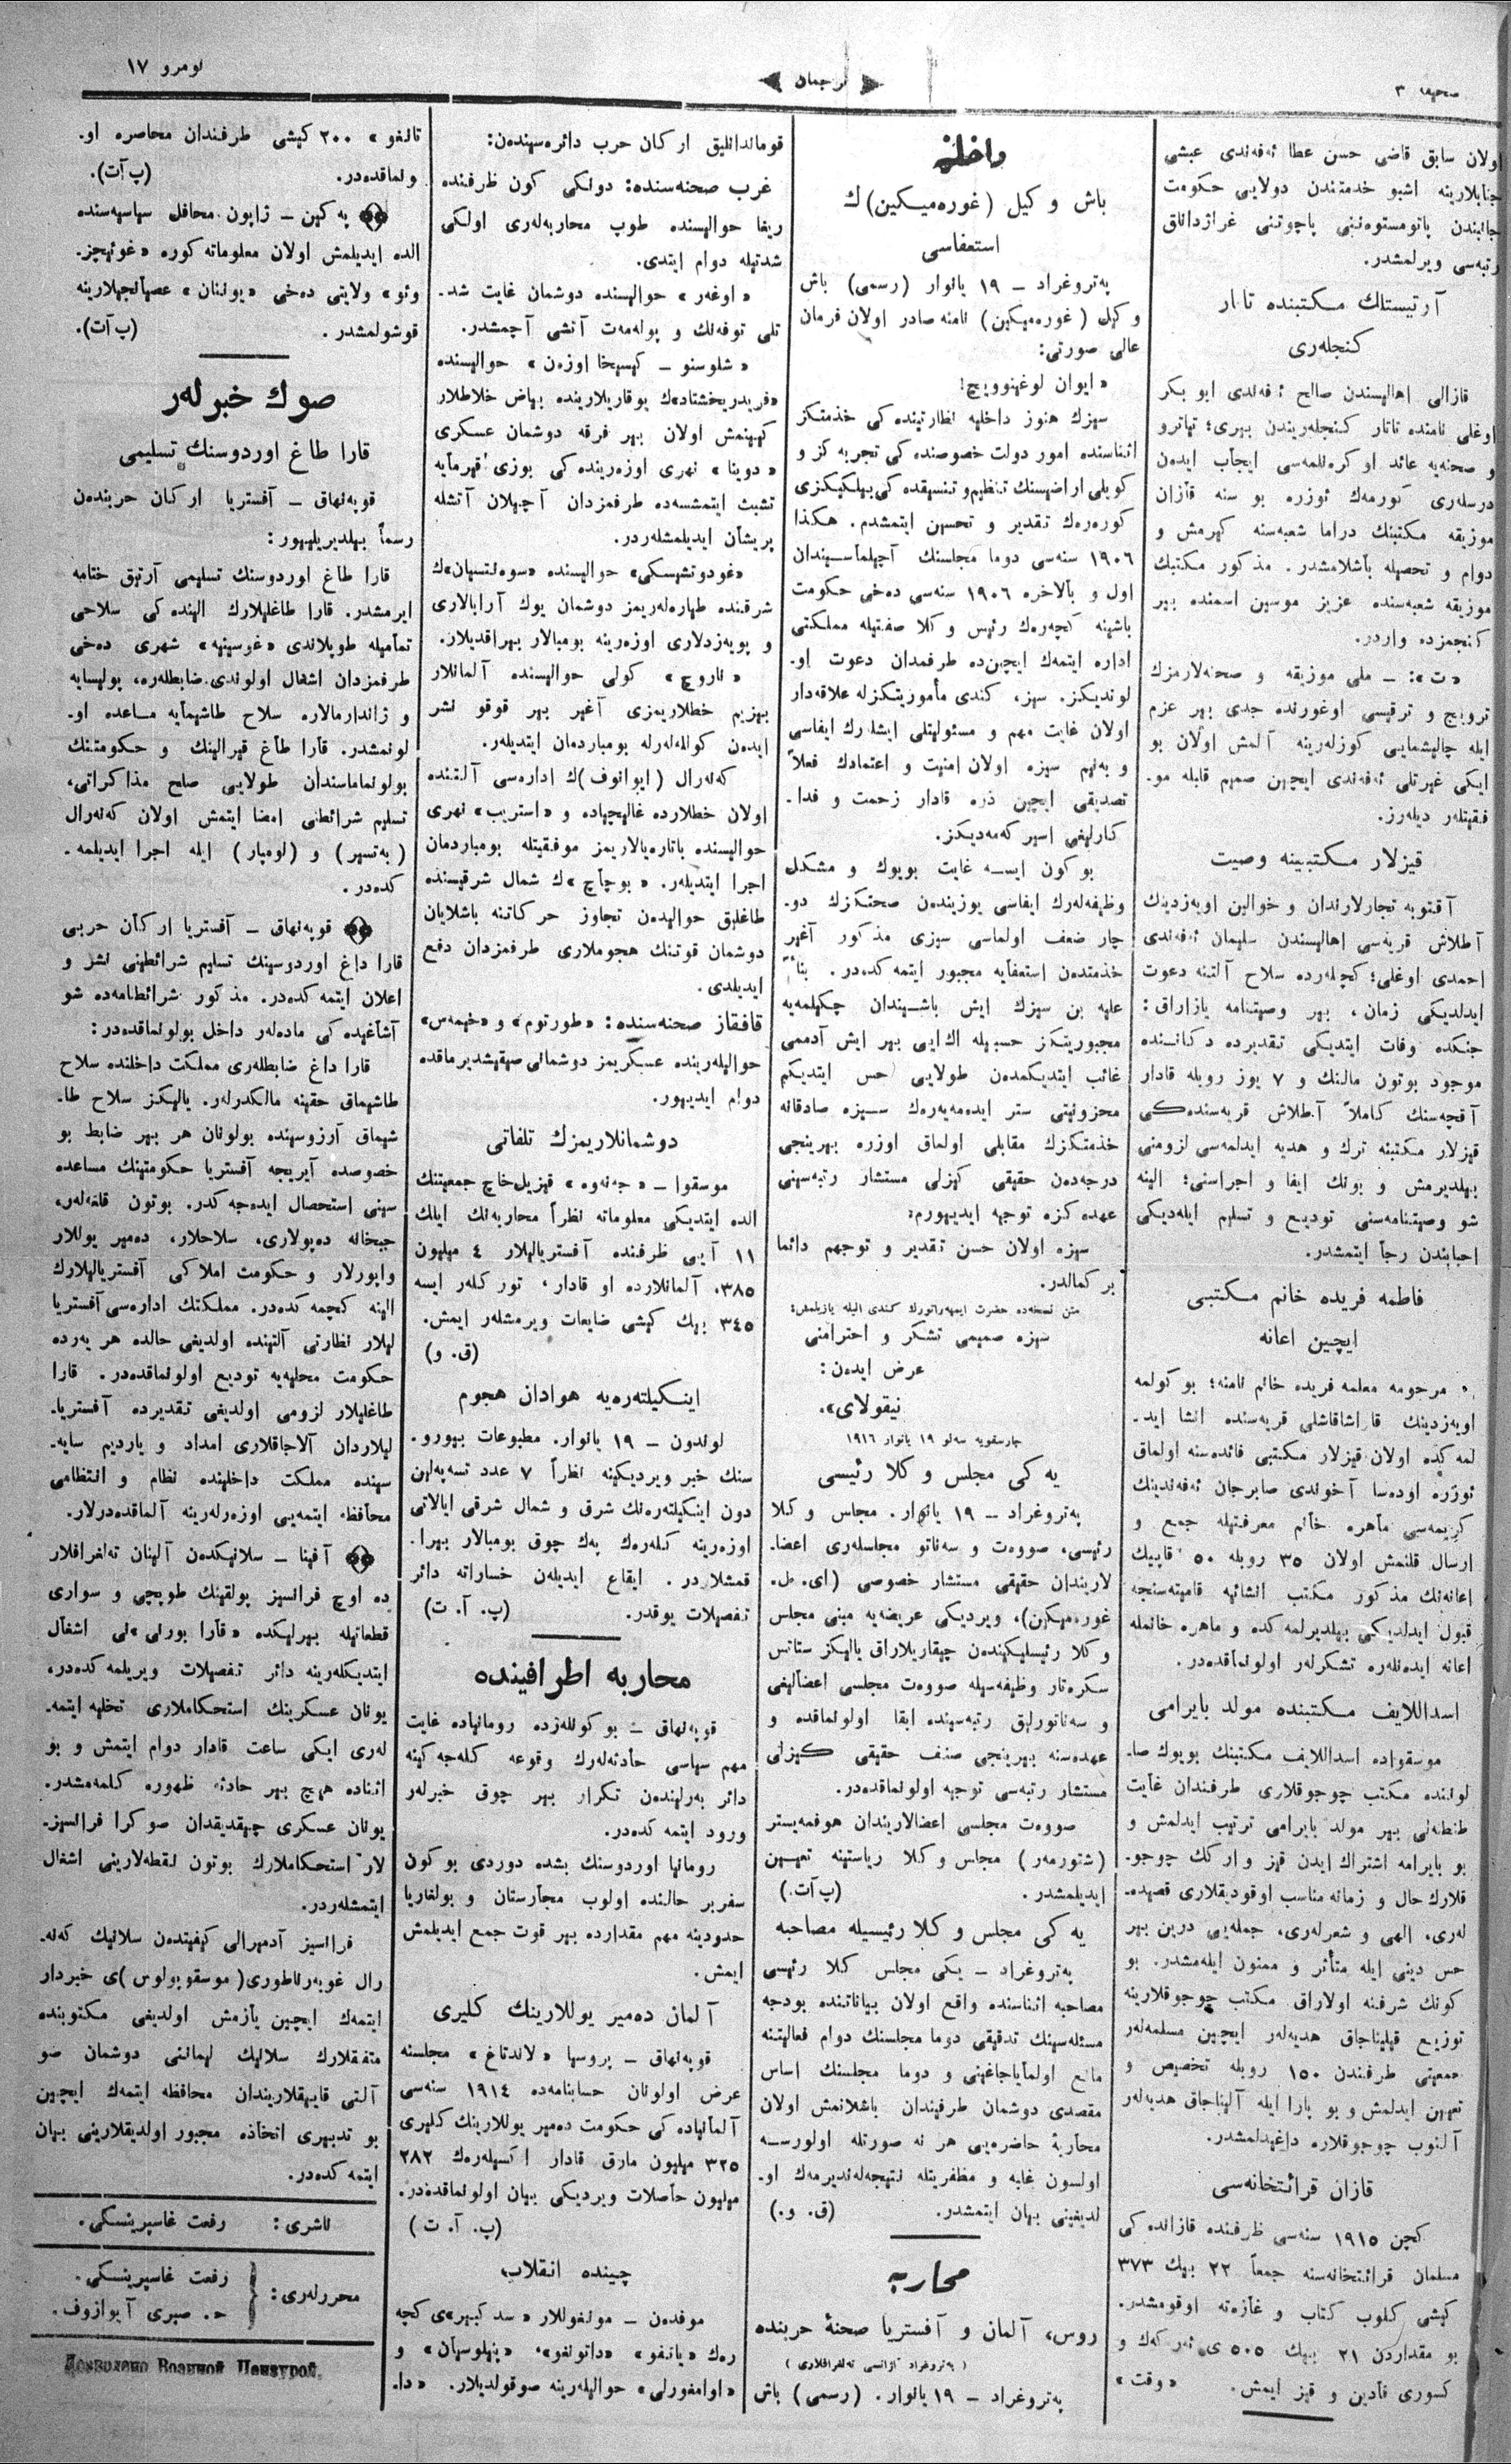 صحیفه ٣
ترجمان
نومرو ١٧
اولان سابق قاضی حسن عطا ئەفەندی عبشی
جنابلارینه اشبو خدمتندن دولایی حکومت
جانبندن پاتومستوەننی پاچوتنی غراژدانلق
رتبه‌سی ویرلمشدر.
آرتیستلك مكتبنده تاتار
كنجلەری
قازالی اهالیسندن صالح ئەفەندی ابو بكر
اوغلی نامنده تاتار كنجلەریندن بیری؛ تیاترو
و صحنەیه عائد اوكرەنلمەسی ایجاب ایدەن
درسلەری كورمەك ئوزره بو سنه قازان
موزیقه مكتبنك دراما شعبەسنه كیرمش و
دوام و تحصیله باشلامشدر. مذكور مكتبك
موزیقه شعبەسنده عزیز موسین اسمنده بیر
كنجمزده واردر.
«ت»: ـ ملی موزیقه و صحنەلارمزك
ترویج و ترقیسی اوغورنده جدی بیر عزم
ایله چالیشمایی كوزلەرینه آلمش اولان بو
ایكی غیرتلی ئەفەندی ایچین صمیم قلبله مو-
فقیتلەر دیلەرز.
قیزلار مكتبینه وصیت
آقتوبه تجارلارندان و خوالین اویەزدینك
آطلاش قریەسی اهالیسندن سلیمان ئەفەندی
احمدی اوغلی؛ كچلەرده سلاح آلتنه دعوت
ایدلدیكی زمان، بیر وصیتنامه یازاراق:
جنكده وفات ایتدیكی تقدیرده دكانسنده
موجود بوتون مالنك و ٧ یوز روبله قادار
آقچەسنك كاملاً آطلاش قریەسندەكی
قیزلار مكتبنه ترك و هدیه ایدلمەسی لزومنی
بیلدیرمش و بونك ایفا و اجراسنی؛ الینه
شو وصیتنامەسنی تودیع و تسلیم ایلەدیكی
احبابندن رجا ایتمشدر.
فاطمه فریده خانم مكتبی
ایچین اعانه
مرحومه معلمه فریده خانم نامنه؛ بوكولمه
اویەزدینك قاراشاقاشلی قریەسنده انشا اید-
لمەكده اولان قیزلار مكتبی فائدەسنه اولماق
ئوزره اودەسا آخوندی صابرجان ئەفەندینك
كریمەسی ماهره خانم معرفتیله جمع و
ارسال قلنمش اولان ٣٥ روبله ٥٠ قاپیك
اعانەنك مذكور مكتب انشائیه قامیتەسنجه
قبول ایدلدیكی بیلدیرلمەكده و ماهره خانمله
اعانه ایدەنلەره تشكرلەر اولونماقدەدر.
اسداللایف مكتبنده مولد بایرامی
موسقواده اسداللایف مكتبنك بویوك صا-
لوننده مكتب چوجوقلاری طرفندان غایت
طنطنەلی بیر مولد بایرامی ترتیب ایدلمش و
بو بایرامه اشتراك ایدن قیز واركك چوجو-
قلارك حال و زمانه مناسب اوقودیقلاری قصیده-
لەری، الهی و شعرلەری، جملەیی درین بیر
حس دینی ایله متأثر و ممنون ایلەمشدر. بو
كونك شرفنه اولاراق مكتب چوجوقلارینه
توزیع قیلیناجاق هدیەلەر ایچین مسلمەلەر
جمعیتی طرفندن ١٥٠ روبله تخصیص و
تعیین ایدلمش و بو پارا ایله آلیناجاق هدیەلەر
آلنوب چوجوقلاره داغیدلمشدر.
قازان قرائتخانەسی
كچن ١٩١٥ سنەسی ظرفنده قازاندەكی
مسلمان قرائتخانەسنه جمعاً ٢٢ بیك ٣٧٣
كیشی كلوب كتاب و غازەته اوقومشدر.
بو مقداردن ٢١ بیك ٥٠٥ ی ئەركەك و
كسوری قادین و قیز ایمش. «وقت»
داخلیه
باش وكیل (غورەمیكین)ك
استعفاسی
پەتروغراد ـ ١٩ یانوار (رسمی) باش
وكیل (غورەمیكین) نامنه صادر اولان فرمان
عالی صورتی:
«ایوان لوغینوویچ!
سیزك هنوز داخلیه نظارتیندەكی خذمتكز
اثناسنده امور دولت خصوصندەكی تجربەكز و
كویلی اراضیسنك تنظیم و تنسیقدەكی بیلكیكزی
كورەرەك تقدیر و تحسین ایتمشدم. هكذا
١٩٠٦ سنەسی دوما مجلسنك آچیلماسیندان
اول و بالآخره ١٩٠٦ سنەسی دەخی حكومت
باشینه كچەرەك رئیس وكلا صفتیله مملكتی
اداره ایتمەك ایچین ده طرفمدان دعوت او-
لوندیكز. سیز، كندی مأموریتكزله علاقەدار
اولان غایت مهم و مسئولیتلی ایشلەرك ایفاسی
و بەنیم سیزه اولان امنیت و اعتمادك فعلاً
تصدیقی ایچین ذره قادار زحمت و فدا-
كارلیغی اسیركەمەدیكز.
بو كون ایســه غایت بویوك و مشكل
وظیفەلەرك ایفاسی یوزیندەن صحتكزك دو-
چار ضعف اولماسی سیزی مذكور آغیر
خذمتدەن استعفایه مجبور ایتمەكدەدر. بناءً
علیه بن سیزك ایش باشــیندان چكیلمەیه
مجبوریتكز حسبیله اك ایی بیر ایش آدممی
غائب ایتدیكمدەن طولایی حس ایتدیكم
محزونیتی ستر ایدەمەیەرەك ســیزه صادقانه
خذمتكزك مقابلی اولماق اوزره بیرینجی
درجەدەن حقیقی كیزلی مستشار رتبەسینی
عهدەكزه توجیه ایدییورم.
سیزه اولان حسن تقدیر و توجهم دائما
بر كمالدر.
متن نسخەده حضرت ایمپەراتورك كندی الیله یازیلمش:
سیزه صمیمی تشكر و احترامنی
عرض ایدەن:
نیقولای».
چارسقویه سەلو ١٩ یانوار ١٩١٦
یەكی مجلس وكلا رئیسی
پەتروغراد ـ ١٩ یانوار. مجلس وكلا
رئیسی، صووەت و سەناتو مجلسلەری اعضا-
لاریندان حقیقی مستشار خصوصی (ای. ل.
غورەمیكین)، ویردیكی عریضەیه مبنی مجلس
وكلا رئیسلیكیندەن چیقاریلاراق یالیكز ستاتس
سكرەتار وظیفەسیله صووەت مجلسی اعضالیغی
و سەناتورلیق رتبەسینده ابقا اولونماقده و
عهدەسنه بیرینجی صنف حقیقی كیزلی
مستشار رتبەسی توجیه اولونماقدەدر.
صووەت مجلسی اعضالاریندان هوفمەیستر
(شتورمەر) مجلس وكلا ریاستینه تعیــین
ایدیلمشدر. (پ‌آت.)
یەكی مجلس وكلا رئیسیله مصاحبه
پەتروغراد ـ یكی مجلس كلا رئیسی
مصاحبه اثناسنده واقع اولان بیاناتنده بودجه
مسئلەسینك تدقیقی دوما مجلسنك دوام فعالیتنه
مانع اولمایاجاغینی و دوما مجلسنك اساس
مقصدی دوشمان طرفیندان باشلانمش اولان
محاربۀ حاضرەیی هر نه صورتله اولورســه
اولسون غلبه و مظفریتله نتیجەلەندیرمەك او-
لدیغینی بیان ایتمشدر. (ق. و.)
محاربه
روس، آلمان و آفستریا صحنۀ حربنده
(پەتروغراد آژانسی تەلغرافلاری)
پەتروغراد ـ ١٩ یانوار. (رسمی) باش
قوماندانلیق اركان حرب دائرەسیندەن:
غرب صحنەسنده: دونكی كون ظرفنده
ریغا حوالیسنده طوپ محاربەلەری اولكی
شدتیله دوام ایتدی.
«اوغەر» حوالیسنده دوشمان غایت شد-
تلی توفەنك و پولەمەت آتشی آچمشدر.
«شلوسنو ـ كیسیخا اوزەن» حوالیسنده
«فریدریخشتاد»ك یوقاریلارینده بیاض خلاطلار
كیینمش اولان بیر فرقه دوشمان عسكری
«دوینا» نهری اوزەریندەكی بوزی قیرمایه
تشبث ایتمشسەده طرفمزدان آچیلان آتشله
پریشان ایدیلمشلەردر.
«غودوتشیسكی» حوالیسنده «سوەنتسیان»ك
شرقنده طیارەلەریمز دوشمان یوك آرابالاری
و پویەزدلاری اوزەرینه بومبالار بیراقدیلار.
«ناروچ» كولی حوالیسنده آلمانلار
بیزیم خطلاریمزی آغیر بیر قوقو نشر
ایدەن كوللەلەرله بومباردمان ایتدیلەر.
كەنەرال (ایوانوف)ك ادارەسی آلتنده
اولان خطلارده غالیچیاده و «استریب» نهری
حوالیسنده باتارەیالاریمز موفقیتله بومباردمان
اجرا ایتدیلەر. «بوچاچ»ك شمال شرقیسنده
طاغلیق حوالیدەن تجاوز حركاتنه باشلایان
دوشمان قوتنك هجوملاری طرفمزدان دفع
ایدیلدی.
قافقاز صحنەسنده: «طورتوم» و «خنیەس»
حوالیلەرینده عسكریمز دوشمانی صیقیشدیرماقده
دوام ایدییور.
دوشمانلاریمزك تلفاتی
موسقوا ـ «جەنەوه» قیزیل‌خاچ جمعیتنك
الده ایتدیكی معلوماته نظراً محاربەنك ایلك
١١ آیی ظرفنده آفستریالیلار ٤ میلیون
٣٨٥، آلمانلارده او قادار، توركلەر ایسه
٣٤٥ بیك كیشی ضایعات ویرمشلەر ایمش.
(ق. و)
اینكیلتەرەیه هوادان هجوم
لوندون ـ ١٩ یانوار. مطبوعات بیورو-
سنك خبر ویردیكینه نظراً ٧ عدد تسەپەلین
دون اینكیلتەرەنك شرق و شمال شرقی ایالاتی
اوزەرینه كلەرەك پەك چوق بومبالار بیرا-
قمشلاردر. ایقاع ایدیلەن خساراته دائر
تفصیلات یوقدر. (پ. آ. ت)
محاربه اطرافینده
قوپەنهاق ـ بو كونلەرده رومانیاده غایت
مهم سیاسی حادثەلەرك وقوعه كلەجەكینه
دائر بەرلیندەن تكرار بیر چوق خبرلەر
ورود ایتمەكدەدر.
رومانیا اوردوسنك بشده دوردی بو كون
سفربر حالنده اولوب مجارستان و بولغاریا
حدودینه مهم مقدارده بیر قوت جمع ایدیلمش
ایمش.
آلمان دەمیر یوللارینك كلیری
قوپەنهاق ـ پروسیا «لاندتاغ» مجلسنه
عرض اولونان حسابنامەده ١٩١٤ سنەسی
آلمانیادەكی حكومت دەمیر یوللارینك كلیری
٣٢٥ میلیون مارق قادار اكسیلەرەك ٢٨٢
میلیون حاصلات ویردیكی بیان اولونماقدەدر.
(پ. آ. ت)
چینده انقلاب
موقدەن ـ مونغوللار «سدكبیر»ی كچه
رەك «یانفو» «داتونغو»، «ینیلوسیان» و
«اوامغورلی» حوالیلەرینه صوقولدیلار. «دا-
تانغو» ٢٠٠ كیشی طرفندان محاصره او-
ولماقدەدر. (پ‌آت).
پەكین ـ ژاپون محافل سیاسیەسنده
الده ایدیلمش اولان معلوماته كوره «غوئیچژ-
وئو» ولایتی دەخی «یوننان» عصیانجیلارینه
قوشولمشدر. (پ‌آت).
صوك خبرلەر
قارا طاغ اوردوسنك تسلیمی
قوپەنهاق ـ آفستریا اركان حربندەن
رسماً بیلدیریلییور:
قارا طاغ اوردوسنك تسلیمی آرتیق ختامه
ایرمشدر. قارا طاغلیلارك الیندەكی سلاحی
تمامیله طوپلاندی «غوسینیه» شهری دەخی
طرفمزدان اشغال اولوندی. ضابطلەره، پولیسایه
و ژاندارمالاره سلاح طاشیمایه مساعده او-
لونمشدر. قارا طاغ قیرالینك و حكومتنك
بولونماماسندان طولایی صلح مذاكراتی،
تسلیم شرائطنی امضا ایتمش اولان كەنەرال
(بەتسیر) و (لومپار) ایله اجرا ایدیلمه-
كدەدر.
قوپەنهاق ـ آفستریا اركان حربی
قارا داغ اوردوسینك تسلیم شرائطینی نشر و
اعلان ایتمەكدەدر. مذكور شرائطنامەده شو
آشاغیدەكی مادەلەر داخل بولونماقدەدر:
قارا داغ ضابطلەری مملكت داخلنده سلاح
طاشیماق حقینه مالكدرلەر. یالیكز سلاح طا-
شیماق آرزوسینده بولونان هر بیر ضابط بو
خصوصده آیریجه آفستریا حكومتینك مساعده
سینی استحصال ایدەجەكدر. بوتون قلعەلەر،
جبخانه دەپولاری، سلاحلار، دەمیر یوللار
واپورلار و حكومت املاكی آفستریالیلارك
الینه كچمەكدەدر. مملكتك ادارەسی آفستریا
لیلار نظارتی آلتینده اولدیغی حالده هر یەرده
حكومت محلیەیه تودیع اولونماقدەدر. قارا
طاغلیلار لزومی اولدیغی تقدیرده آفستریا-
لیلاردان آلاجاقلاری امداد و یاردیم سایه-
سینده مملكت داخلینده نظام و انتظامی
محافظه ایتمەیی اوزەرلەرینه آلماقدەدرلار.
آفینا ـ سلانیكدەن آلینان تەلغرافلار
ده اوچ فرانسیز پولقینك طوپچی و سواری
قطعاتیله بیرلیكده «قارا بورنی»نی اشغال
ایتدیكلەرینه دائر تفصیلات ویریلمەكدەدر.
یونان عسكرینك استحكاملاری تخلیه ایتمه-
لەری ایكی ساعت قادار دوام ایتمش و بو
اثناده هیچ بیر حادثه ظهوره كلمەمشدر.
یونان عسكری چیقدیقدان صوكرا فرانسیز-
لار استحكاملارك بوتون نقطەلارینی اشغال
ایتمشلەردر.
فرانسیز آدمیرالی كیفیتدەن سلانیك كەنه-
رال غوبەرناطوری (موسقوپولوس)ی خبردار
ایتمەك ایچین یازمش اولدیغی مكتوبنده
متفقلارك سلانیك لیمانی دوشمان صو
آلتی قاییقلاریندان محافظه ایتمەك ایچین
بو تدبیری اتخاذه مجبور اولدیقلارینی بیان
ایتمەكدەدر.
ناشری: رفعت غاسپرینسكی.
محررلەری: رفعت غاسپرینسكی.
ح. صبری آیوازوف.
Дозволено Военной Цензурой.